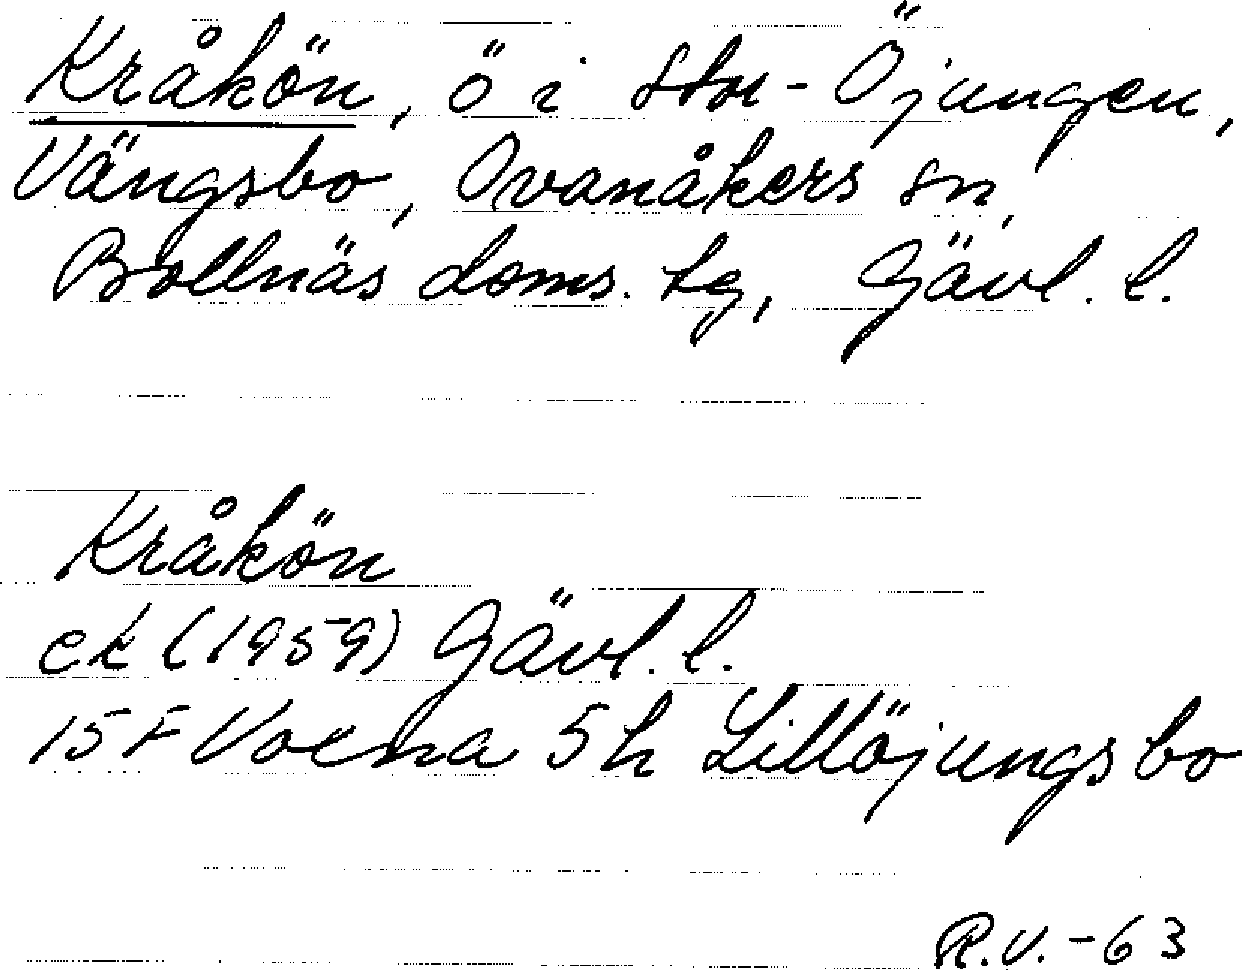 Kråkön, ö i Stor-Öjungen,
Vängsbo, Ovanåkers sn,
Bollnäs doms. tg, Gävl. l.
Kråkön
ek (1959) Gävl. l.
15 F Voxna 5h Lillöjungsbo
R.V. -63